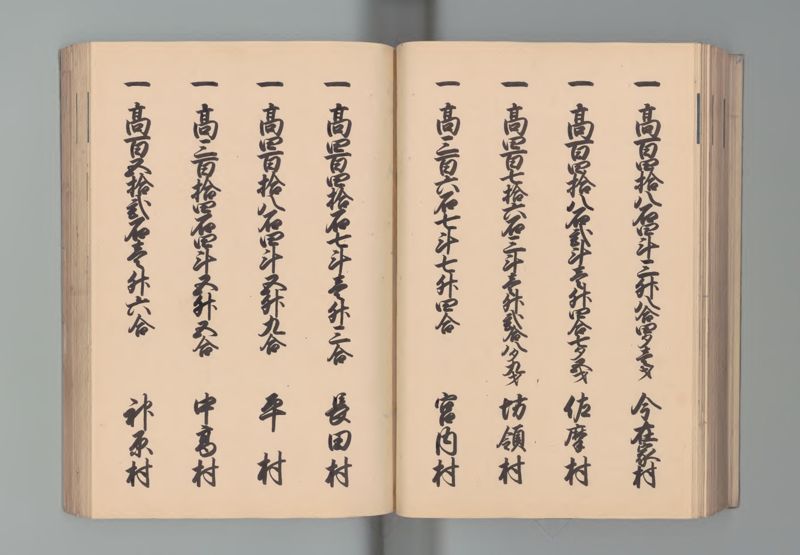 一 高百四拾八石四斗三升八合四夕壱才 今在家村
一 高百四拾八石弐斗壱升四合七夕五才 佐摩村
一 高四百七拾六石三斗壱升弐合八夕九才 坊領村
一 高三百六石七斗七升四合 宮内村
一 高四百四拾石七斗壱升三合 長田村
一 高四百拾八石四斗五升九合 平村
一 高三百拾四石四斗五升五合 中高村
一 高百五拾弐石壱升六合 神原村